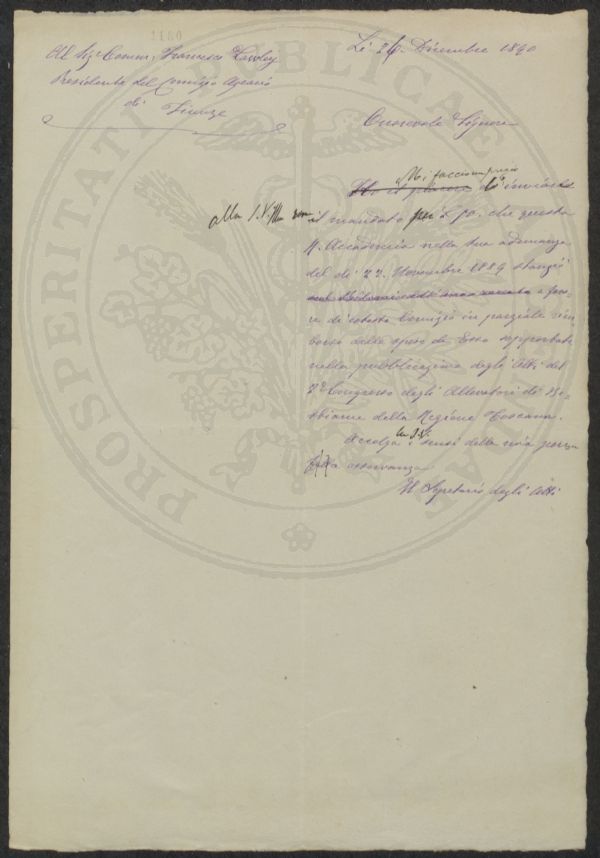 1180
Al Sig. Comm. Francesco Lawley
Presidente del Comizio Agrario
di Firenze
Li Dicembre 1890
Onorevole Signore
Mi faccio un pregio
Ho il piacere di inviare
alla S. V. Ill.ma il mandato per £ 50. che questa
R. Accademia nella sua adunanza
del dì 22. Novembre 1889 stanziò
a favo-
re di cotesto Comizio in parziale rim-
borso delle spese da Esso sopportate
nella pubblicazione degli Atti del
7° Congresso degli Allevatori di Be-
stiame della Regione Toscana.
Accolga la S. V. i sensi della mia
osservanza
Il Segretario degli Atti
PROSPERITATI PUBLICAE